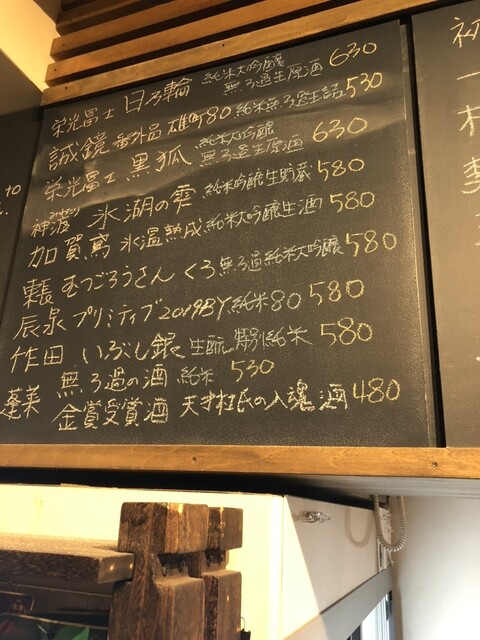 栄光冨士 日乃輪 純米大吟醸 無ろ過生原酒 630
誠鏡 番外品 雄町80 純米無ろ過生詰 530
栄光冨士 黒狐 純米大吟醸 無ろ過生原酒 630
神渡 みわたり 氷湖の雫 純米吟醸生貯蔵 580
加賀鳶 氷温熟成 純米大吟醸生酒 580
東長 むつごろうさん くろ 無ろ過純米大吟醸 580
辰泉 プリミティブ2019BY 純米80 580
作田 いぶし銀 生酛 特別純米 580
蓬莱 無ろ過の酒 純米 530
金賞受賞酒 天才杜氏の入魂酒 480
to
初
一